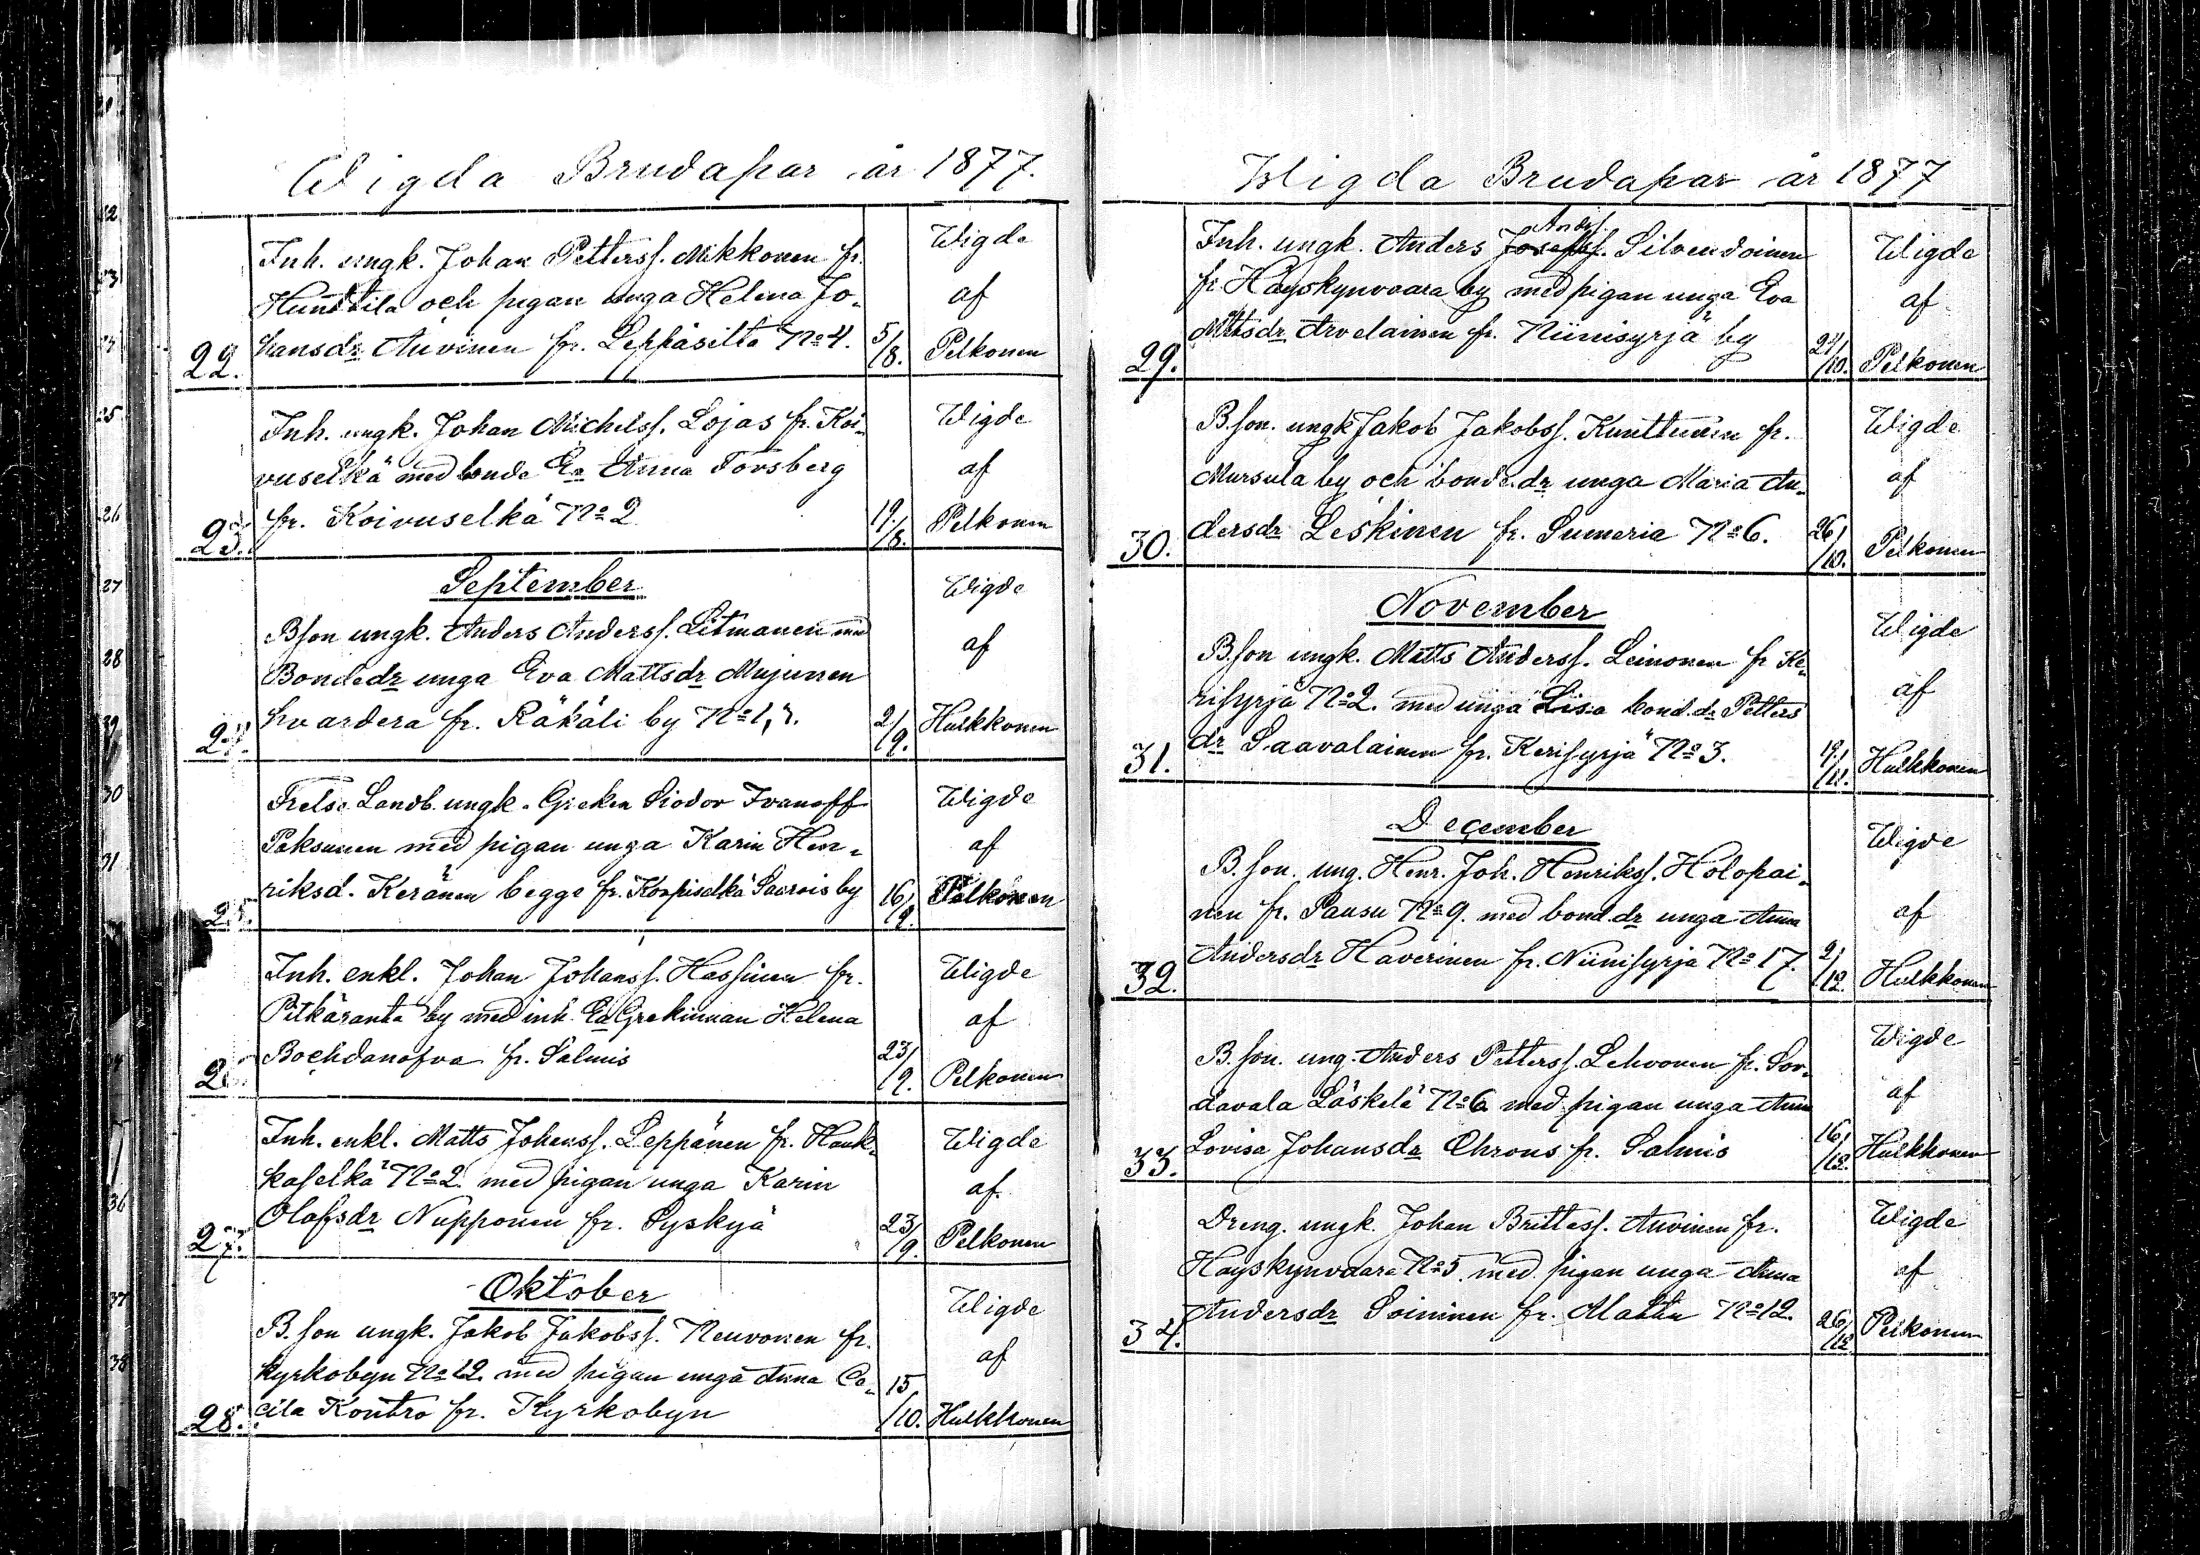 Wigda Brudapar år 1877.
Inh. ungk. Johan Petterss. Mikkonen fr.
Hunttila och pigan unga Helena Jo-
hansdr Auvinen fr. Leppäsilta No 4.
22. 5/8. Wigde af Pelkonen
Inh. ungk. Johan Michelss. Lojas fr. Koi-
vuselkä med bonde Ea Anna Forsberg
fr. Koivuselkä No 2
23. 19/8. Wigde af Pelkonen
September
Bson ungk. Anders Anderss. Litmanen med
Bondedr unga Eva Mattsdr Mujunen
hvardera fr. Räkäli by No 1, 3.
24. 2/9. Wigde af Hulkkonen
Frelse Landb. ungk. Greken Siodor Ivanoff
Paksunen med pigan unga Karin Hen-
riksd. Keränen begge fr. Korpiselkä Saarois by
25. 16/9. Wigde af Pelkonen
Inh. enkl. Johan Johanss. Hassinen fr.
Pitkäranta by med inh. Ea Grekinnan Helena
Bochdanofva fr. Salmis
26. 23/9. Wigde af Pelkonen
Inh. enkl. Matts Johanss. Leppänen fr. Hauk-
kaselkä No 2 med pigan unga Karin
Olofsdr Nupponen fr. Syskyä
27. 23/9. Wigde af Pelkonen
Oktober
B. son ungk. Jakob Jakobss. Neuvonen fr.
kyrkobyn No 12 med pigan unga Anna Ce-
cila Kontro fr. Kyrkobyn
28. 15/10. Wigde af Hulkkonen
Wigda Brudapar år 1877
Anderss.
Inh. ungk. Anders Josefss. Silvendoinen
fr. Häyskynvaara by med pigan unga Eva
Mattsdr Arvelainen fr. Niinisyrjä by
29. 21/10. Wigde af Pelkonen
B. son. ungk Jakob Jakobss. Kunttuinen fr.
Mursula by och bonde.dr unga Maria An-
dersdr Leskinen fr. Sumeria No 6.
30. 26/10. Wigde af Pelkonen
November
B. son ungk. Matts Anderss. Leinonen fr Ke-
risyrjä No 2. med unga Lisa bond.dr Petters
dr Saavalainen fr. Kerisyrjä No 3.
31. 19/11. Wigde af Hulkkonen
December
B. son. ung. Henr. Joh. Henrikss. Holopai-
nen fr. Pausu No 9. med bond.dr unga Anna
Andersdr Haverinen fr. Niinisyrjä No 17.
32. 2/12. Wigde af Hulkkonen
B. son. ung. Anders Petterss. Lehvonen fr. Sor-
davala Läskelä No 6 med pigan unga Anna
Lovisa Johansdr Chrons fr. Salmis
33. 16/12. Wigde af Hulkkonen
Dreng. ungk. Johan Brittass. Auvinen fr.
Häyskynvaara No 5. med pigan unga Anna
Andersdr Soininen fr. Mattu No 12.
34. 26/12 Wigde af Pelkonen